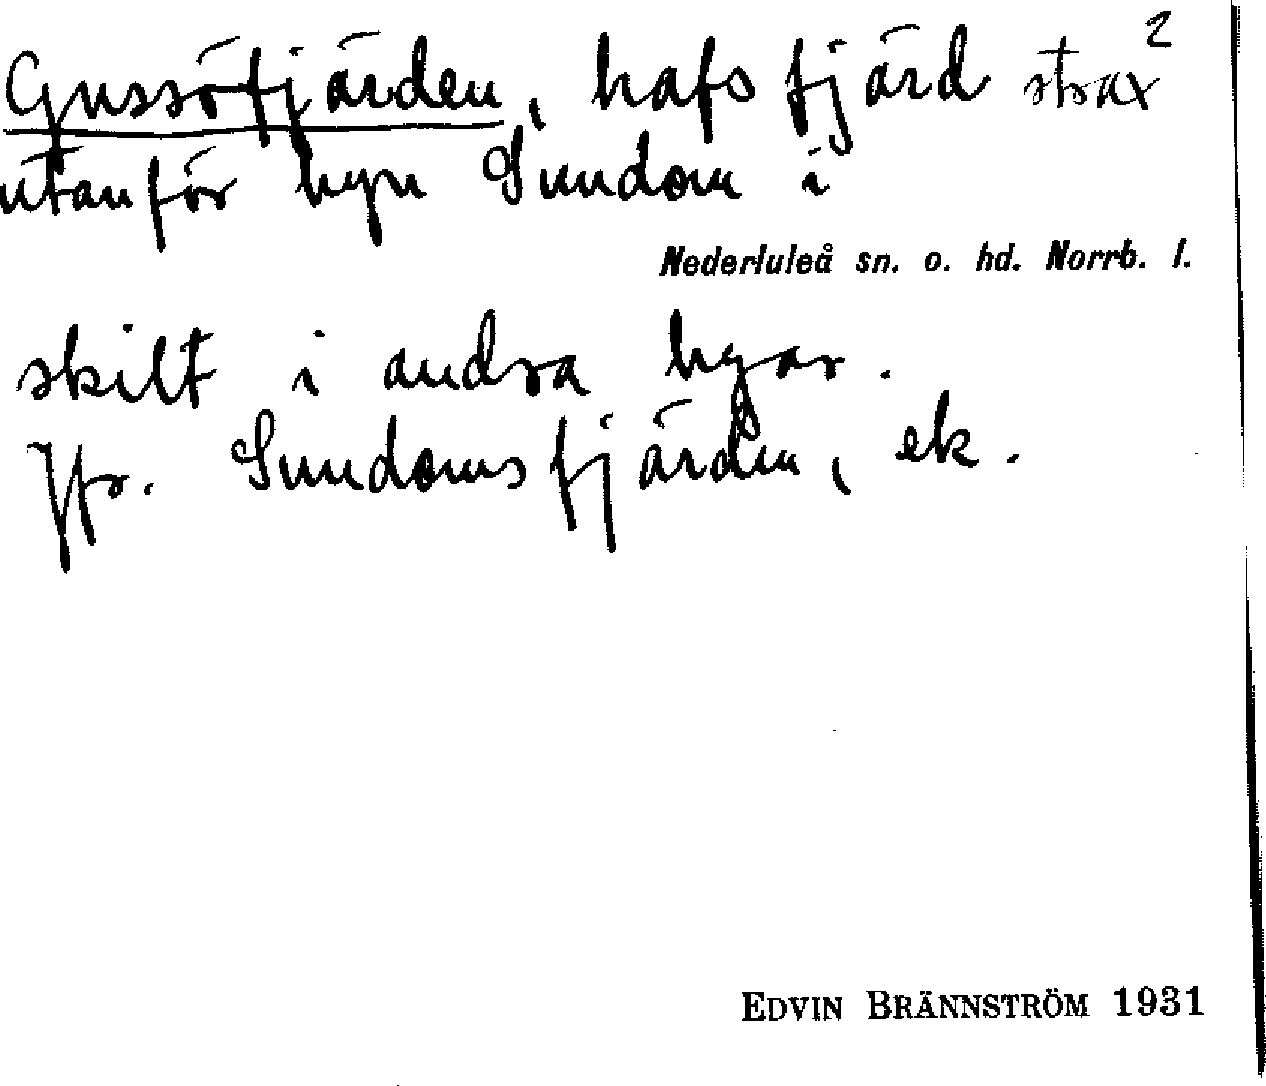 Gussöfjärden, hafsfjärd strax 2
utanför byn Sundom i
Nederluleå sn. o. hd. Norrb. l.
skilt i andra byar.
Jfr. Sundomsfjärden, ek.
EDVIN BRÄNNSTRÖM 1931